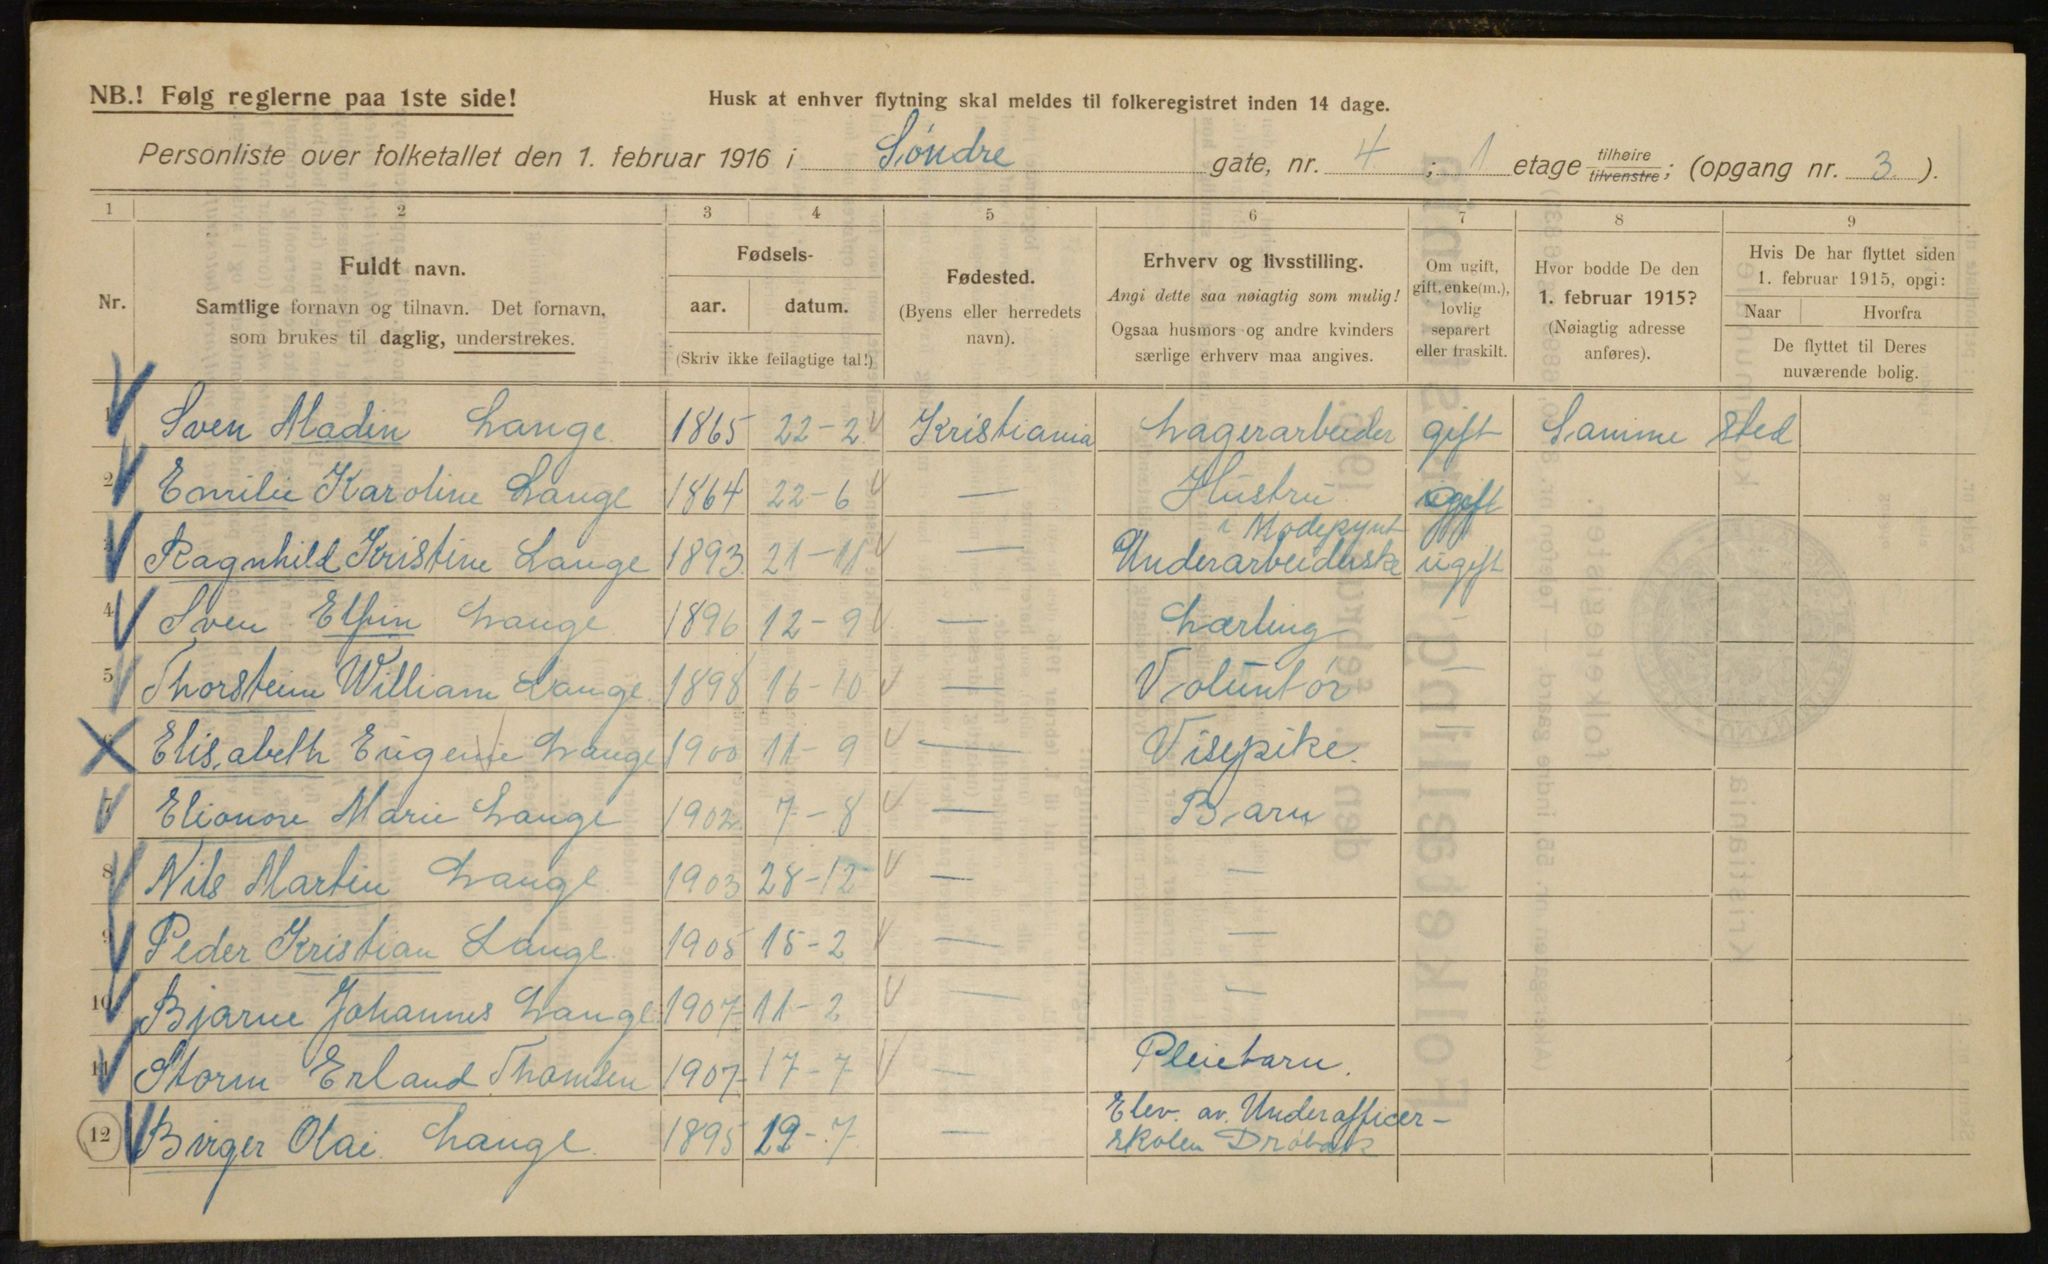 NB.! Følg reglerne paa 1ste side!
Husk at enhver flytning skal meldes til folkeregistret inden 14 dage.
Personliste over folketallet den 1. februar 1916 i Søndre gate, nr. 4 ; 1 etage tilhøire tilvenstre; (opgang nr. 3 ).
1 2 3 4 5 6 7 8 9
Nr.
Fuldt navn.
Samtlige fornavn og tilnavn. Det fornavn,
som brukes til daglig, understrekes.
Fødsels-
aar. datum.
(Skriv ikke feilagtige tal!)
Fødested.
(Byens eller herredets
navn).
Erhverv og livsstilling.
Angi dette saa nøiagtig som mulig!
Ogsaa husmors og andre kvinders
særlige erhverv maa angives.
Om ugift,
gift, enke(m.),
lovlig
separert
eller fraskilt.
Hvor bodde De den
1. februar 1915?
(Nøiagtig adresse
anføres).
Hvis De har flyttet siden
1. februar 1915, opgi:
Naar Hvorfra
De flyttet til Deres
nuværende bolig.
1 Sven Madin Lange 1865 22-2 Kristiania Lagerarbeider gift Samme sted
2 Emilie Karoline Lange 1864 22-6 — Hustru gift
i Modepynt
3 Ragnhild Kristine Lange 1893 21-11 — Underarbeiderske ugift
4 Sven Elfin Lange 1896 12-9 — Lærling -
5 Thorstein William Lange 1898 16-10 — Voluntør —
6 Elisabeth Eugenie Lange 1900 11-9 — Visepike.
7 Elionore Marie Lange 1902 7-8 — Barn
8 Nils Martin Lange 1903 28-12 — —
9 Peder Kristian Lange 1905 15-2 — —
10 Bjarne Johannes Lange 1907 11-2 — —
11 Storm Erland Thomsen 1907 17-7 — Pleiebarn.
Elev. av. Underofficer-
12 Birger Olai Lange 1895 19-7 — skolen Drøbak